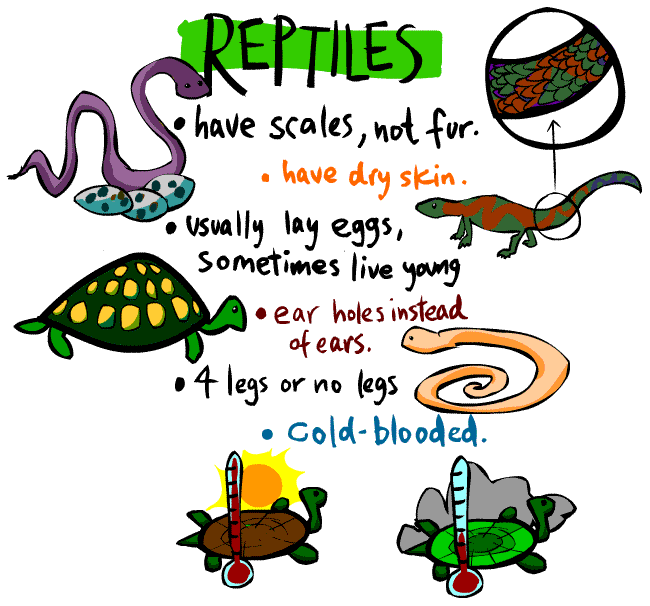 REPTILES
• have scales, not fur.
• have dry skin.
• usually lay eggs,
sometimes live young
• ear holes instead
of ears.
• 4 legs or no legs
• cold-blooded.